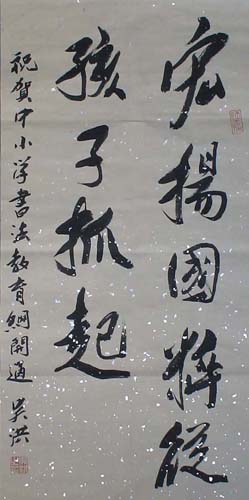 宏揚國粹從
孩子抓起
祝賀中小学書法教育網開通 吴洪